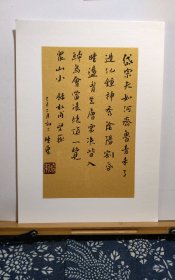 岱宗夫如何齊魯青未了
造化鍾神秀陰陽割昏
曉盪胸生層雲決眥入
歸鳥會當凌絕頂一覽
衆山小 錄杜甫望嶽